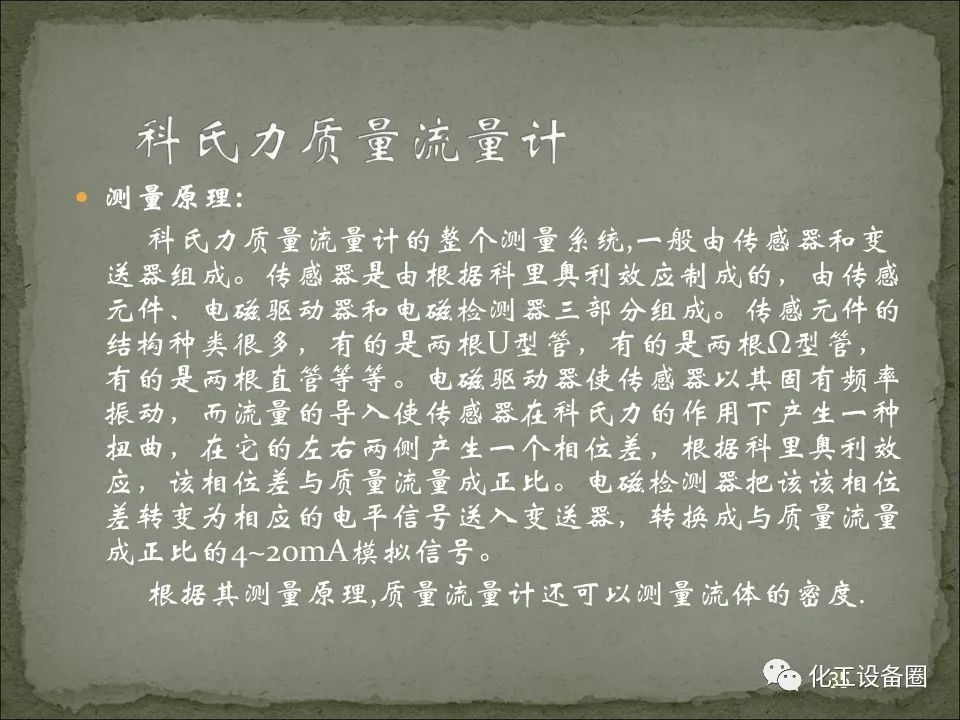 科氏力质量流量计
• 测量原理:
科氏力质量流量计的整个测量系统,一般由传感器和变
送器组成。传感器是由根据科里奥利效应制成的，由传感
元件、电磁驱动器和电磁检测器三部分组成。传感元件的
结构种类很多，有的是两根U型管，有的是两根Ω型管，
有的是两根直管等等。电磁驱动器使传感器以其固有频率
振动，而流量的导入使传感器在科氏力的作用下产生一种
扭曲，在它的左右两侧产生一个相位差，根据科里奥利效
应，该相位差与质量流量成正比。电磁检测器把该该相位
差转变为相应的电平信号送入变送器，转换成与质量流量
成正比的4~20mA模拟信号。
根据其测量原理,质量流量计还可以测量流体的密度.
化工设备圈